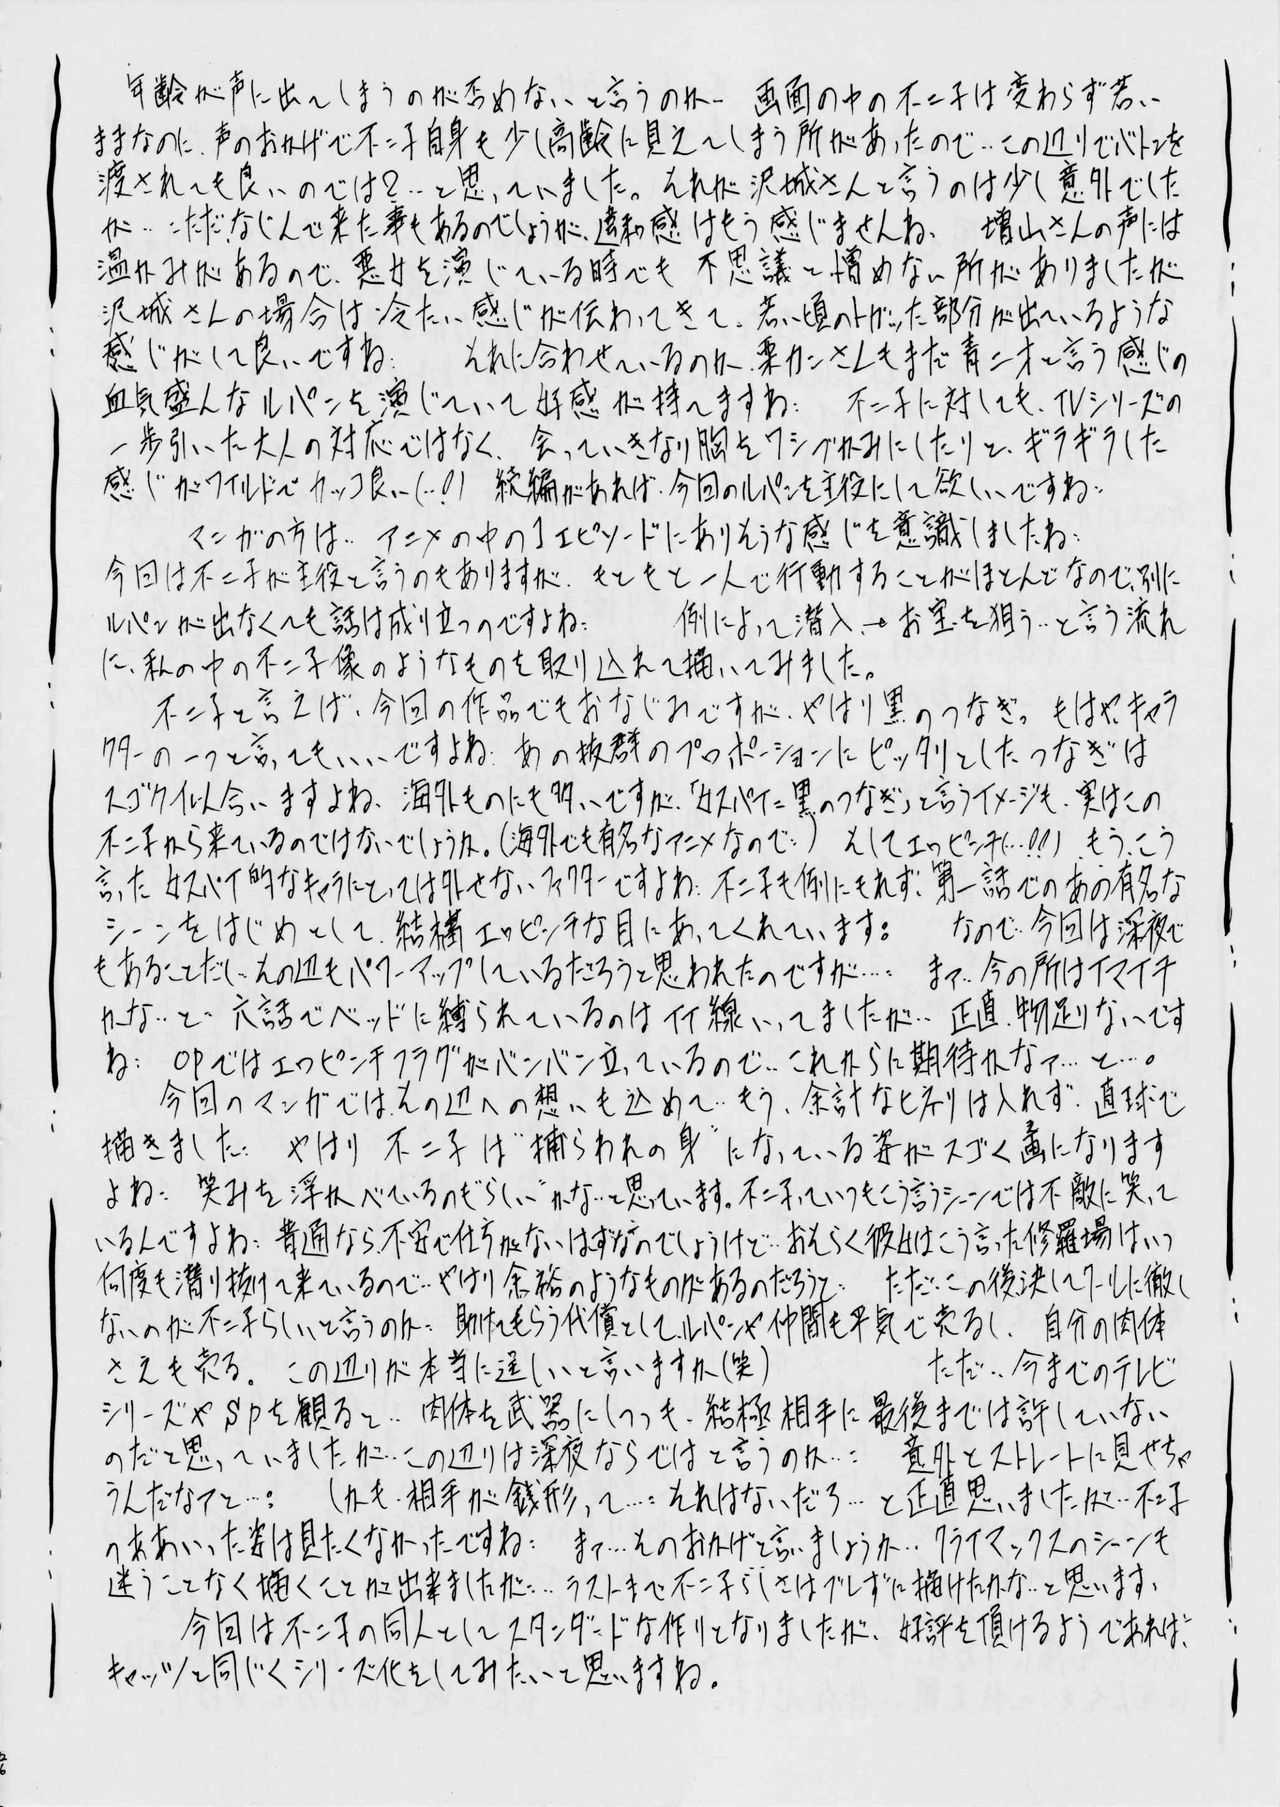 年齢が声に出てしまうのが否めないと言うのか… 画面の中の不二子は変わらず若い
ままなのに、声のおかげで不二子自身も少し高齢に見えてしまう所があったので‥この辺りでバトンを
渡されても良いのでは?‥と思っていました。それが沢城さんと言うのは少し意外でした
が‥ただ、なじんで来た事もあるのでしょうが、違和感はもう感じませんね、 増山さんの声には
温かみがあるので、悪女を演じている時でも 不思議と憎めない所がありましたが
沢城さんの場合は冷たい感じが伝わってきて、若い頃のトガッた部分が出ているような
感じがして良いですね: それに合わせているのか、栗カンさんもまだ青二才と言う感じの
血気盛んなルパンを演じていて好感が持てますね: 不二子に対しても、TVシリーズの
一歩引いた大人の対応ではなく、会っていきなり胸をワシヅかみにしたりと、ギラギラした
感じがワイルドでカッコ良い(‥!) 続編があれば、今回のルパンを主役にして欲しいですね‥
マンガの方は‥ アニメの中の1エピソードにありそうな感じを意識しましたね:
今回は不二子が主役と言うのもありますが、もともと一人で行動することがほとんどなので、別に
ルパンが出なくても話は成り立つのですよね: 例によって潜入→お宝を狙う‥と言う流れ
に、私の中の不二子像のようなものを取り込れて描いてみました。
不二子と言えば、今回の作品でもおなじみですが、やはり黒のつなぎ。もはや、キャラ
クターの一つと言ってもいいですよね: あの抜群のプロポーションにピッタリとしたつなぎは
スゴク似合いますよね、海外ものにも多いですが、「女スパイ=黒のつなぎ」と言うイメージも、実はこの
不二子から来ているのではないでしょうか。(海外でも有名なアニメなので‥) そしてエロピンチ(…!!)、もう、こう
言った女スパイ的なキャラにとっては外せないファクターですよね: 不二子も例にもれず、第一話でのあの有名な
シーンをはじめとして、結構エロピンチな目にあってくれています。 なので‥今回は深夜で
もあることだし‥その辺もパワーアップしているだろうと思われたのですが…: まァ‥今の所はイマイチ
かな‥と‥ 六話でベッドに縛られているのはイイ線いってましたが‥ 正直、物足りないです
ね: OPではエロピンチフラグがバンバン立っているので‥これからに期待かなァ…と…。
今回のマンガでは、その辺への想いも込めて‥もう、余計なヒネリは入れず、直球で
描きました: やはり 不二子は"捕らわれの身"になっている姿がスゴく画になります
よね: 笑みを浮かべているのも"らしい"かな‥と思っています。不二子っていつもこう言うシーンでは不敵に笑って
いるんですよね: 普通なら、不安で仕方がないはずなのでしょうけど‥おそらく彼女はこう言った修羅場はいつ
何度も潜り抜けて来ているので‥やはり余裕のようなものがあるのだろうと: ただ‥この後決してクールに徹し
ないのが不二子らしいと言うのか: 助けてもらう代償として、ルパンや仲間も平気で売るし、 自分の肉体
さえも売る。 この辺りが本当に逞しいと言いますか(笑) ただ‥今までのテレビ
シリーズやSPを観ると‥ 肉体を武器にしつつも、結極相手に最後までは許していない
のだと思っていましたが‥この辺りは深夜ならではと言うのか…: 意外とストレートに見せちゃ
うんだなァと…: しかも、相手が銭形って…: それはないだろ…と正直思いましたが‥不二子
のああいった姿は見たくなかったですね: まァ…そのおかげと言いましょうか‥クライマックスのシーンも
迷うことなく描くことが出来ましたが…ラストまで不二子らしさはブレずに描けたかな‥と思います、
今回は不二子の同人としてスタンダードな作りとなりましたが、好評を頂けるようであれば、
キャッツと同じくシリーズ化をしてみたいと思いますね。